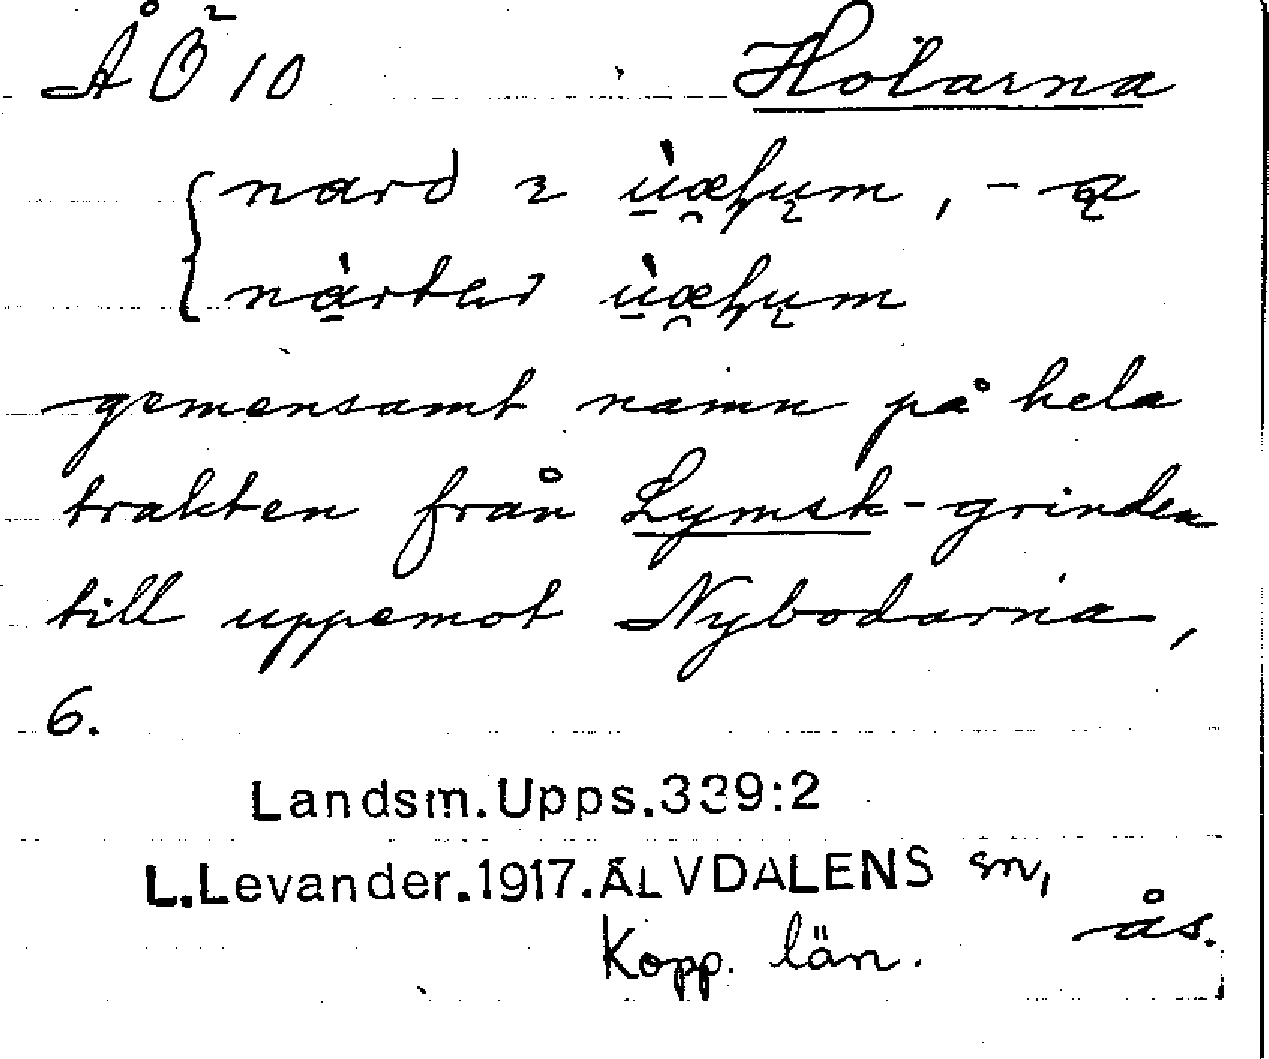 ÅÖ²10 Hölarna
gemensamt namn på hela
trakten från Lymsk-grinden
till uppemot Nybodarna,
6.
Landsm.Upps.339:2
L.Levander.1917.ÄLVDALENS sn,
Kopp. län. ås.